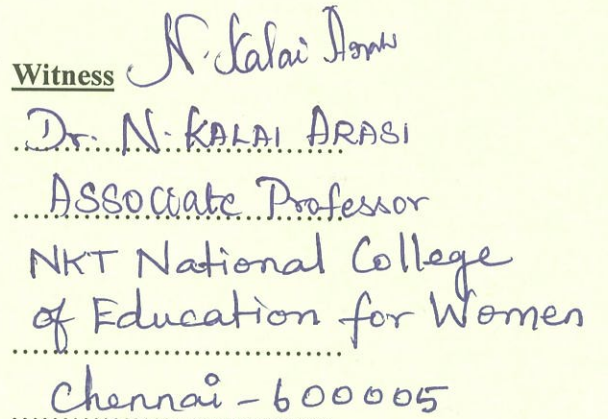 Witness N. Kalai Arasi
Dr. N. KALAI ARASI
Associate Professor
NKT National College
of Education for Women
Chennai - 600005